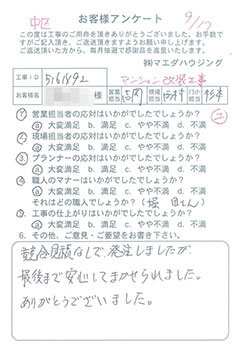 お客様アンケート
中区
9/17
この度は工事のご用命を頂きありがとうございました。お手数で
すがご記入頂き、ご返送頂きますようお願い申し上げます。
ご返送頂いた方から、毎月抽選で感謝品を進呈いたします。
㈱マエダハウジング
工事ID 5161892 マンション改装工事
お客様名 様 営業担当 現場担当 プランナー担当
1 営業担当者の対応はいかがでしたでしょうか?
a 大変満足 b. 満足 c. やや不満 d. 不満
2 現場担当者の対応はいかがでしたでしょうか?
a 大変満足 b. 満足 c. やや不満 d. 不満
3 プランナーの対応はいかがでしたでしょうか?
a 大変満足 b. 満足 c. やや不満 d. 不満
4 職人のマナーはいかがでしたでしょうか?
a 大変満足 b. 満足 c. やや不満 d. 不満
それはどの職人でしょうか?(堀 さん)
5. 工事の仕上がりはいかがでしたでしょうか?
a 大変満足 b. 満足 c. やや不満 d. 不満
6. その他、ご意見・ご要望をお書き下さい。
競合見積なしで、発注しましたが、
最後まで安心してまかせられました。
ありがとうございました。